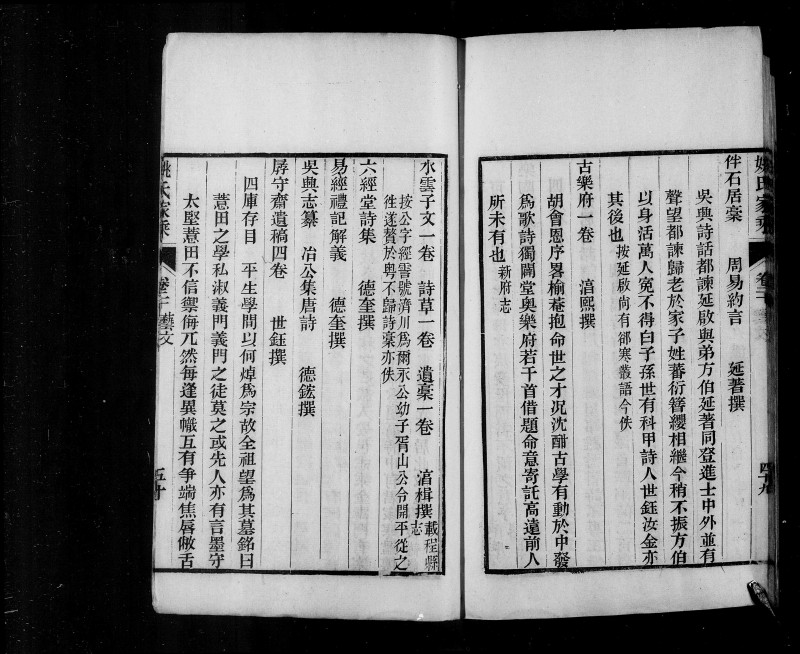 姚氏家乘 卷二十藝文 四十九
伴石居稾 周易約言 延著撰
吳興詩話都諫延啟與弟方伯延著同登進士中外並有
聲望都諫歸老於家子姓蕃衍簪纓相繼今稍不振方伯
以身活萬人冤不得白子孫世有科甲詩人世鈺汝金亦
其後也 按延啟尙有郤寒叢語今佚
古樂府一卷 淯熙撰
胡會恩序畧榆菴抱命世之才况沈酣古學有動於中發
爲歌詩獨闢堂奥樂府若干首借題命意寄託高遠前人
所未有也 新府志
水雲子文一卷 詩草一卷 遺稾一卷 淯楫撰 載程縣志
按公字經雲號濟川爲爾承公幼子胥山公令開平從之
徃遂贅於粤不歸詩稾亦佚
六經堂詩集 德奎撰
易經禮記解義 德奎撰
吳興志纂 冶公集唐詩 德鋐撰
孱守齋遺稿四卷 世鈺撰
四庫存目 平生學問以何焯爲宗故全祖望爲其墓銘曰
薏田之學私淑義門義門之徒莫之或先人亦有言墨守
太堅薏田不信禦侮兀然每逢異幟互有爭端焦唇敝舌
姚氏家乘 卷二十藝文 五十